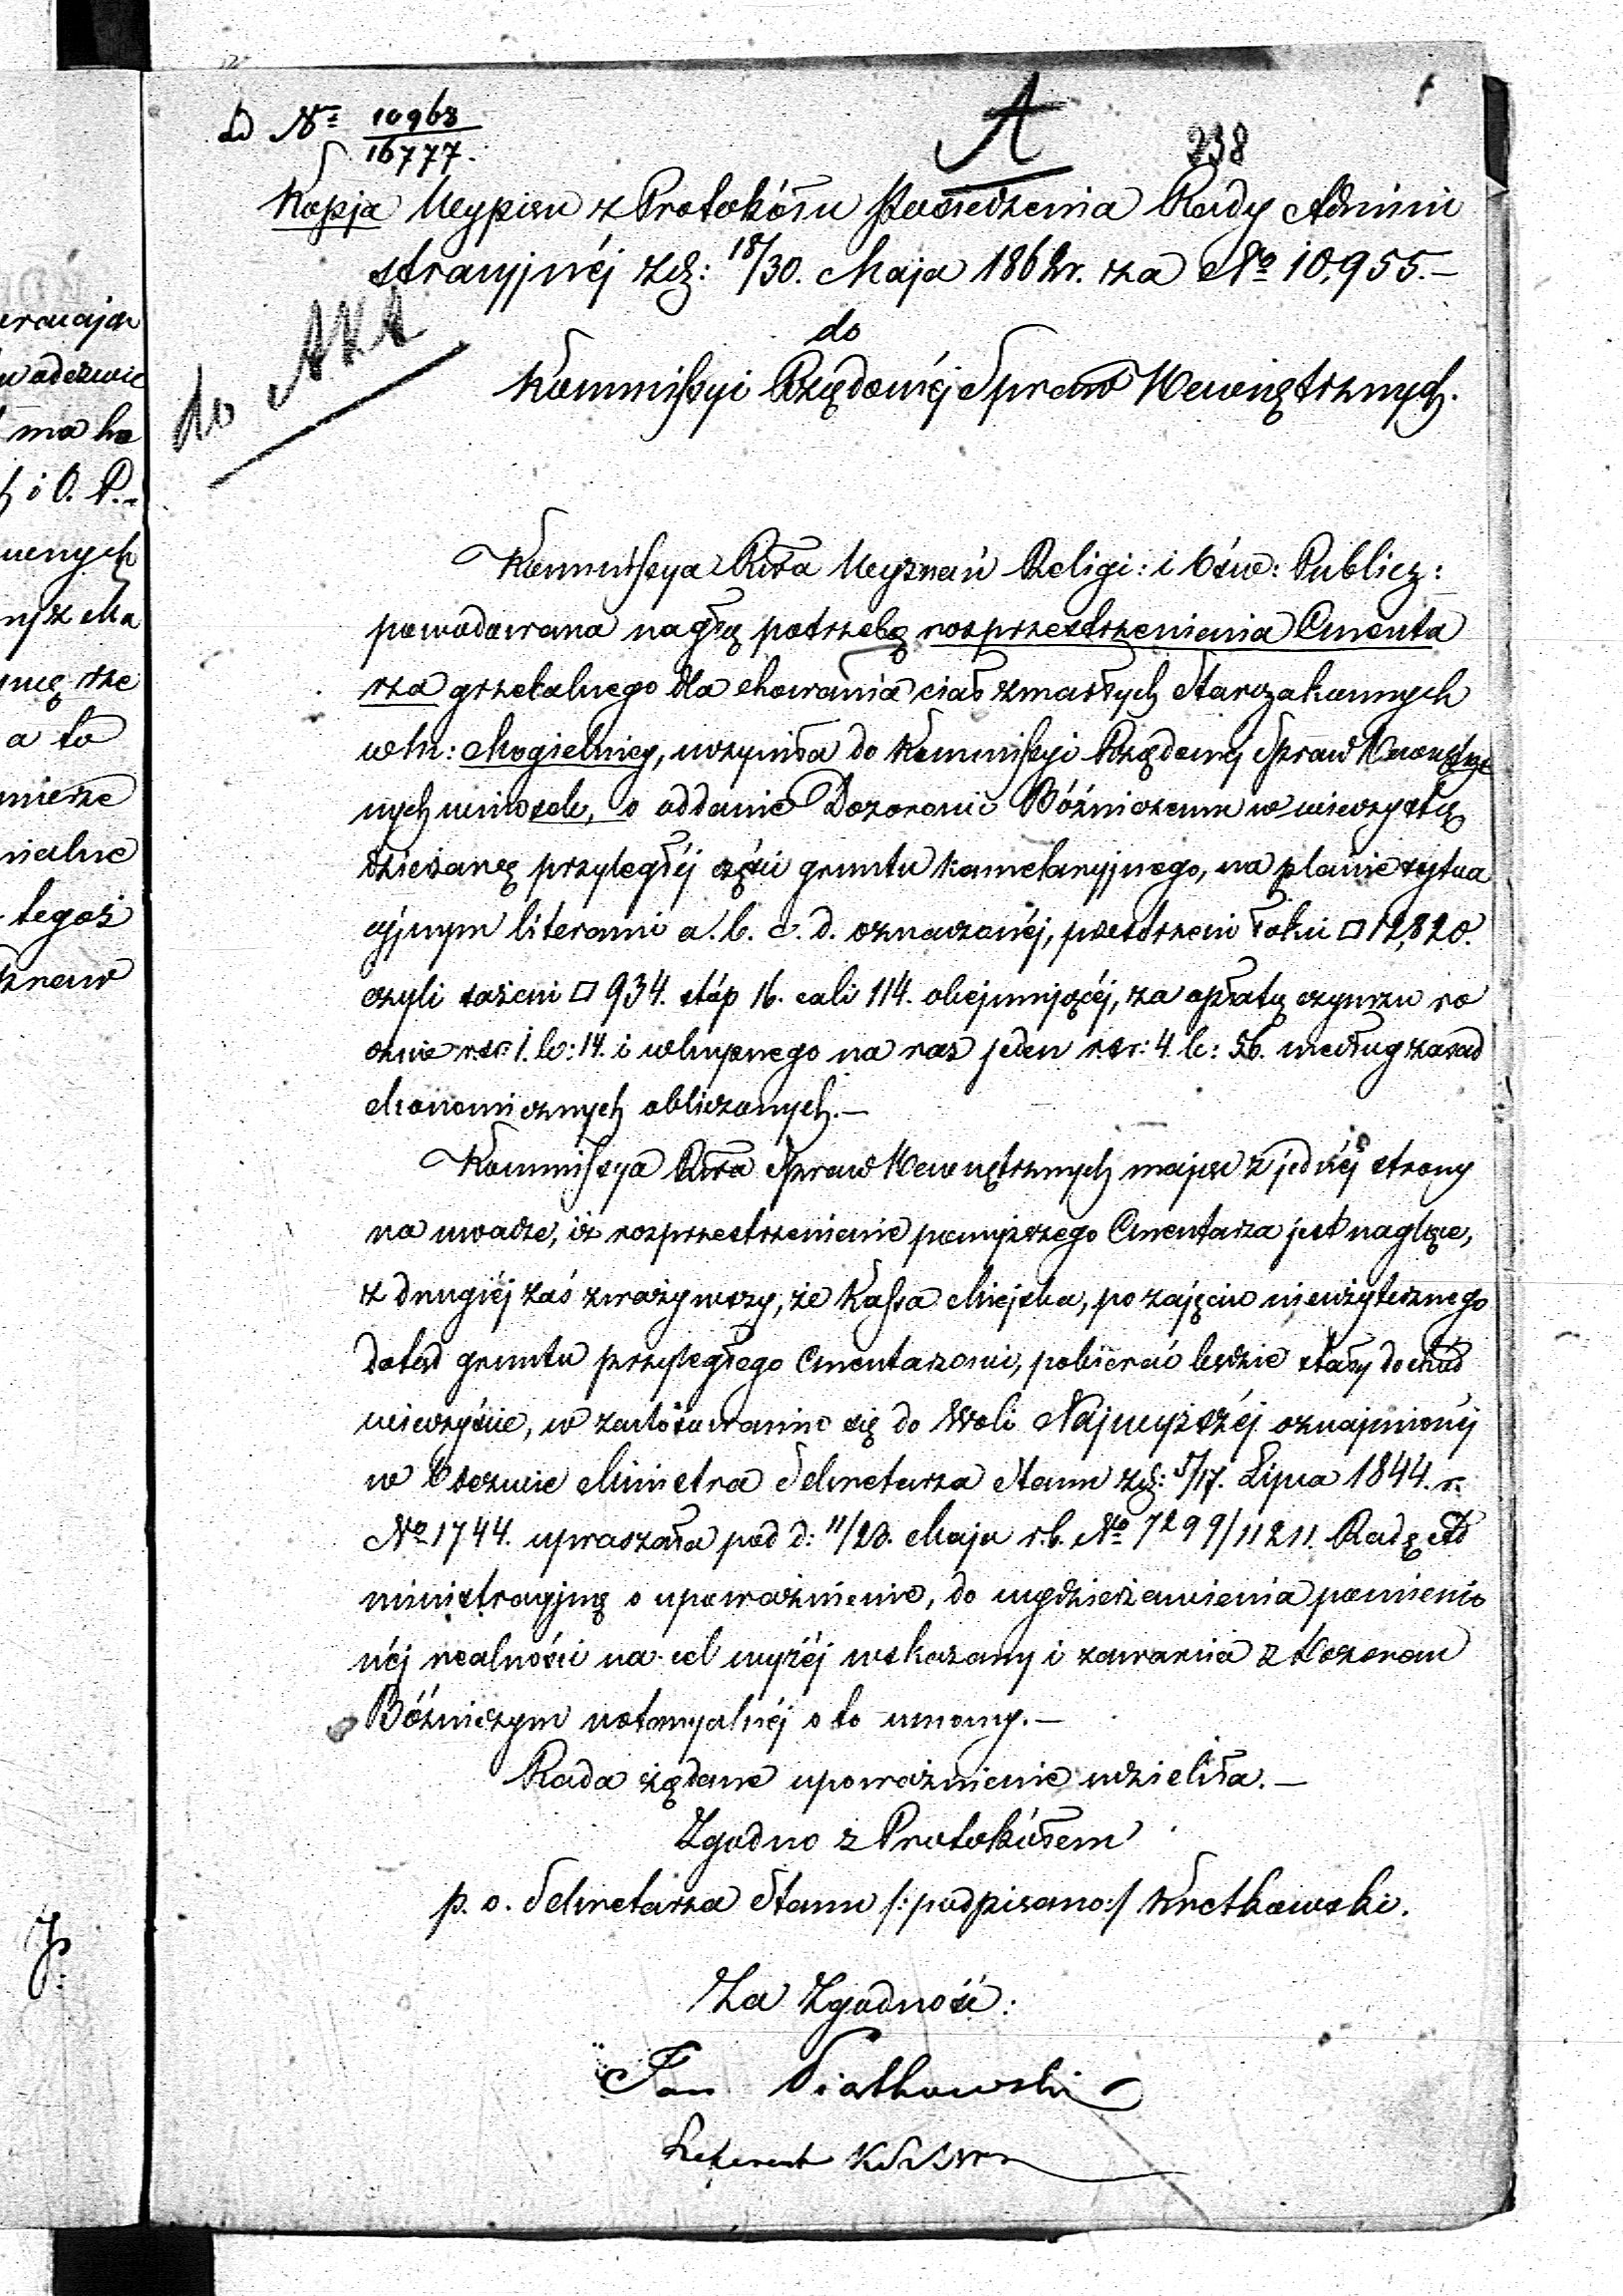 D No 10968/16777.
A
238
Kopja Wypisu z Protokółu Posiedzenia Rady Admini
stracyjnéj z d: 18/30. Maja 1862 r. za No 10,955.—
do Akt
do
Kommissyi Rządowéj Spraw Wewnętrznych.
Kommissya Rzƚa Wyznań Religi: i Ośw: Publicz:
powodowana nagłą potrzebą rozprzestrzenienia Cmenta
rza grzebalnego dla chowania ciał zmarłych Starozakonnych
w m: Mogielnicy, uczyniła do Kommissyi Rządowej Spraw Wewnętrz
nych wniosek, o oddanie Dozorowi Bóźniczemu w wieczystą
dzierżawę przyległéj części gruntu kamelaryjnego, na planie sytua
cyjnym literami a. b. c. d. oznaczonéj, przestrzeni łokci □ 12,820.
czyli sażeni □ 934. stóp 16. cali 114. obejmującéj, za opłatą czynszu ro
cznie rsr: 1. k: 14. i wkupnego na raz jeden rsr: 4. k: 56. według zasad
ekonomicznych obliczonych.—
Kommissya Rzƚa Spraw Wewnętrznych mając z jednéj strony
na uwadze, iż rozprzestrzenienie powyższego Cmentarza jest naglące,
z drugiéj zaś zważywszy, że Kassa Miejska, po zajęciu nieużytecznego
dotąd gruntu przyległego Cmentarzowi, pobierać będzie stały dochód
wieczyście, w zastósowaniu się do Woli Najwyższéj oznajmionéj
w Odezwie Ministra Sekretarza Stanu z d: 5/17. Lipca 1844. r.
No 1744. upraszała pod d: 11/23. Maja r. b. No 7299/11211. Radę Ad
ministracyjną o upoważnienie, do wydzierżawienia pomienio
néj realności na cel wyżéj wskazany i zawarcia z Dozorem
Bóźniczym notaryalnéj o to umowy.—
Rada żądane upoważnienie udzieliła.—
Zgodno z Protokółem
p. o. Sekretarza Stanu /: podpisano :/ Kretkowski.
Za Zgodność:
Jan Piatkowski
Referent